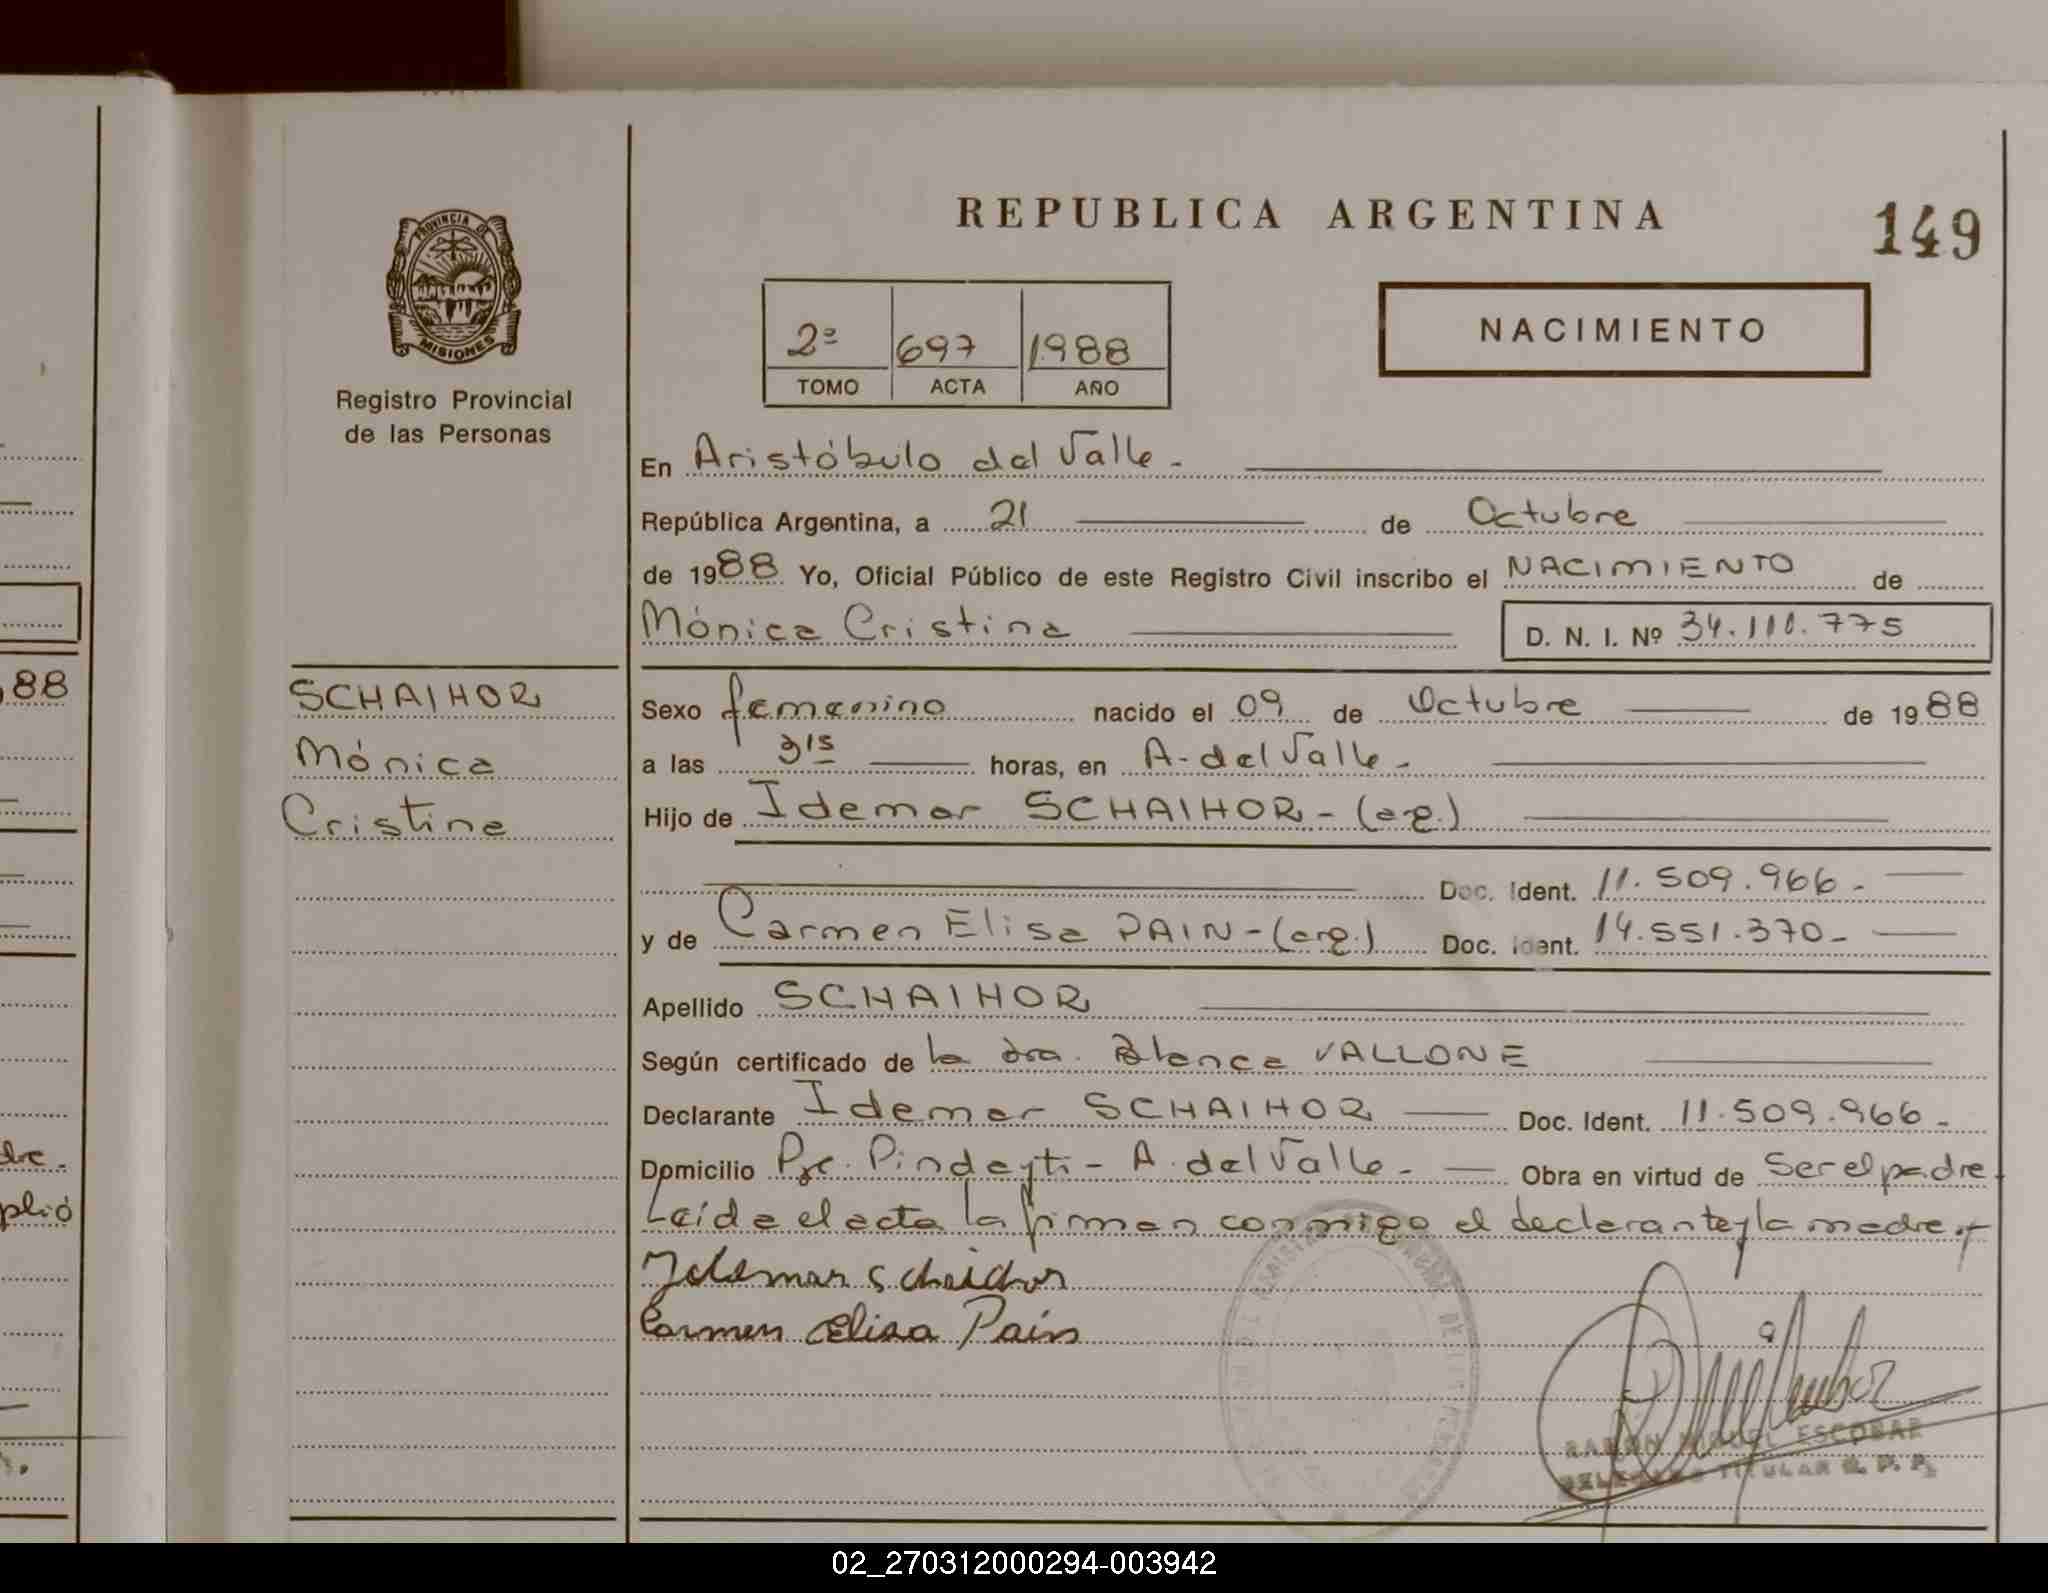 REPUBLICA ARGENTINA
149
PROVINCIA DE
MISIONES
Registro Provincial
de las Personas
2º 697 1988
TOMO ACTA AÑO
NACIMIENTO
En Aristóbulo del Valle.-
República Argentina, a 21 de Octubre
de 1988 Yo, Oficial Público de este Registro Civil inscribo el NACIMIENTO de
Mónica Cristina D. N. I. Nº 34.110.775
88
SCHAIHOR
Mónica
Cristina
Sexo femenino nacido el 09 de Octubre de 1988
a las 3 15 horas, en A. del Valle.-
Hijo de Idemar SCHAIHOR-(arg.)
Doc. Ident. 11.509.966.-
y de Carmen Elisa PAIN-(arg.) Doc. Ident. 14.551.370-
Apellido SCHAIHOR
Según certificado de la dra. Blanca VALLONE
Declarante Idemar SCHAIHOR Doc. Ident. 11.509.966-
Domicilio Pje. Pindayti- A. del Valle.- Obra en virtud de Ser el padre
Leída el acta la firman conmigo el declarante y la madre.
dre.
plió
Idemar Schaihor
Carmen Elisa Pain
RAMON MIGUEL ESCOBAR
DELEGADO TITULAR R. P. P.
02_270312000294-003942